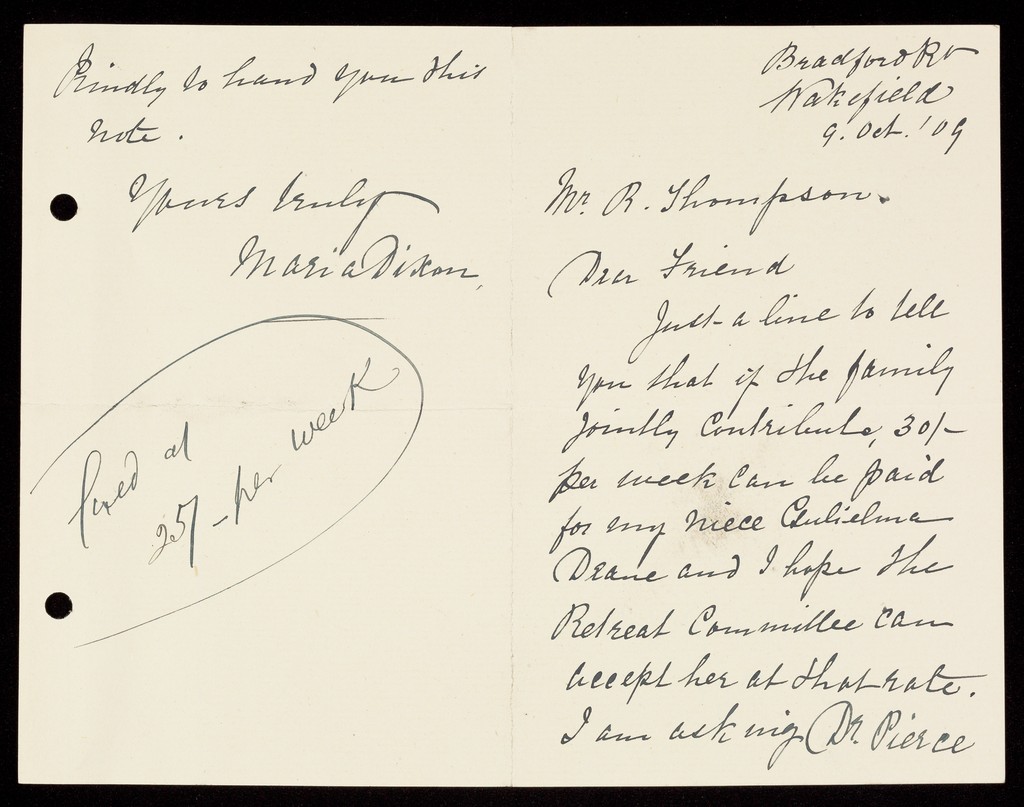 Bradford Rd
Wakefield
9. Oct. '09
Mr. R. Thompson.
Dear Friend
Just a line to tell
you that if the family
jointly contribute, 30/-
per week can be paid
for my niece Gulielma
Deane and I hope the
Retreat Committee can
accept her at that rate.
I am asking Dr. Pierce
Kindly to hand you this
note.
Yours truly
Maria Dixon,
fixed at
25/- per week